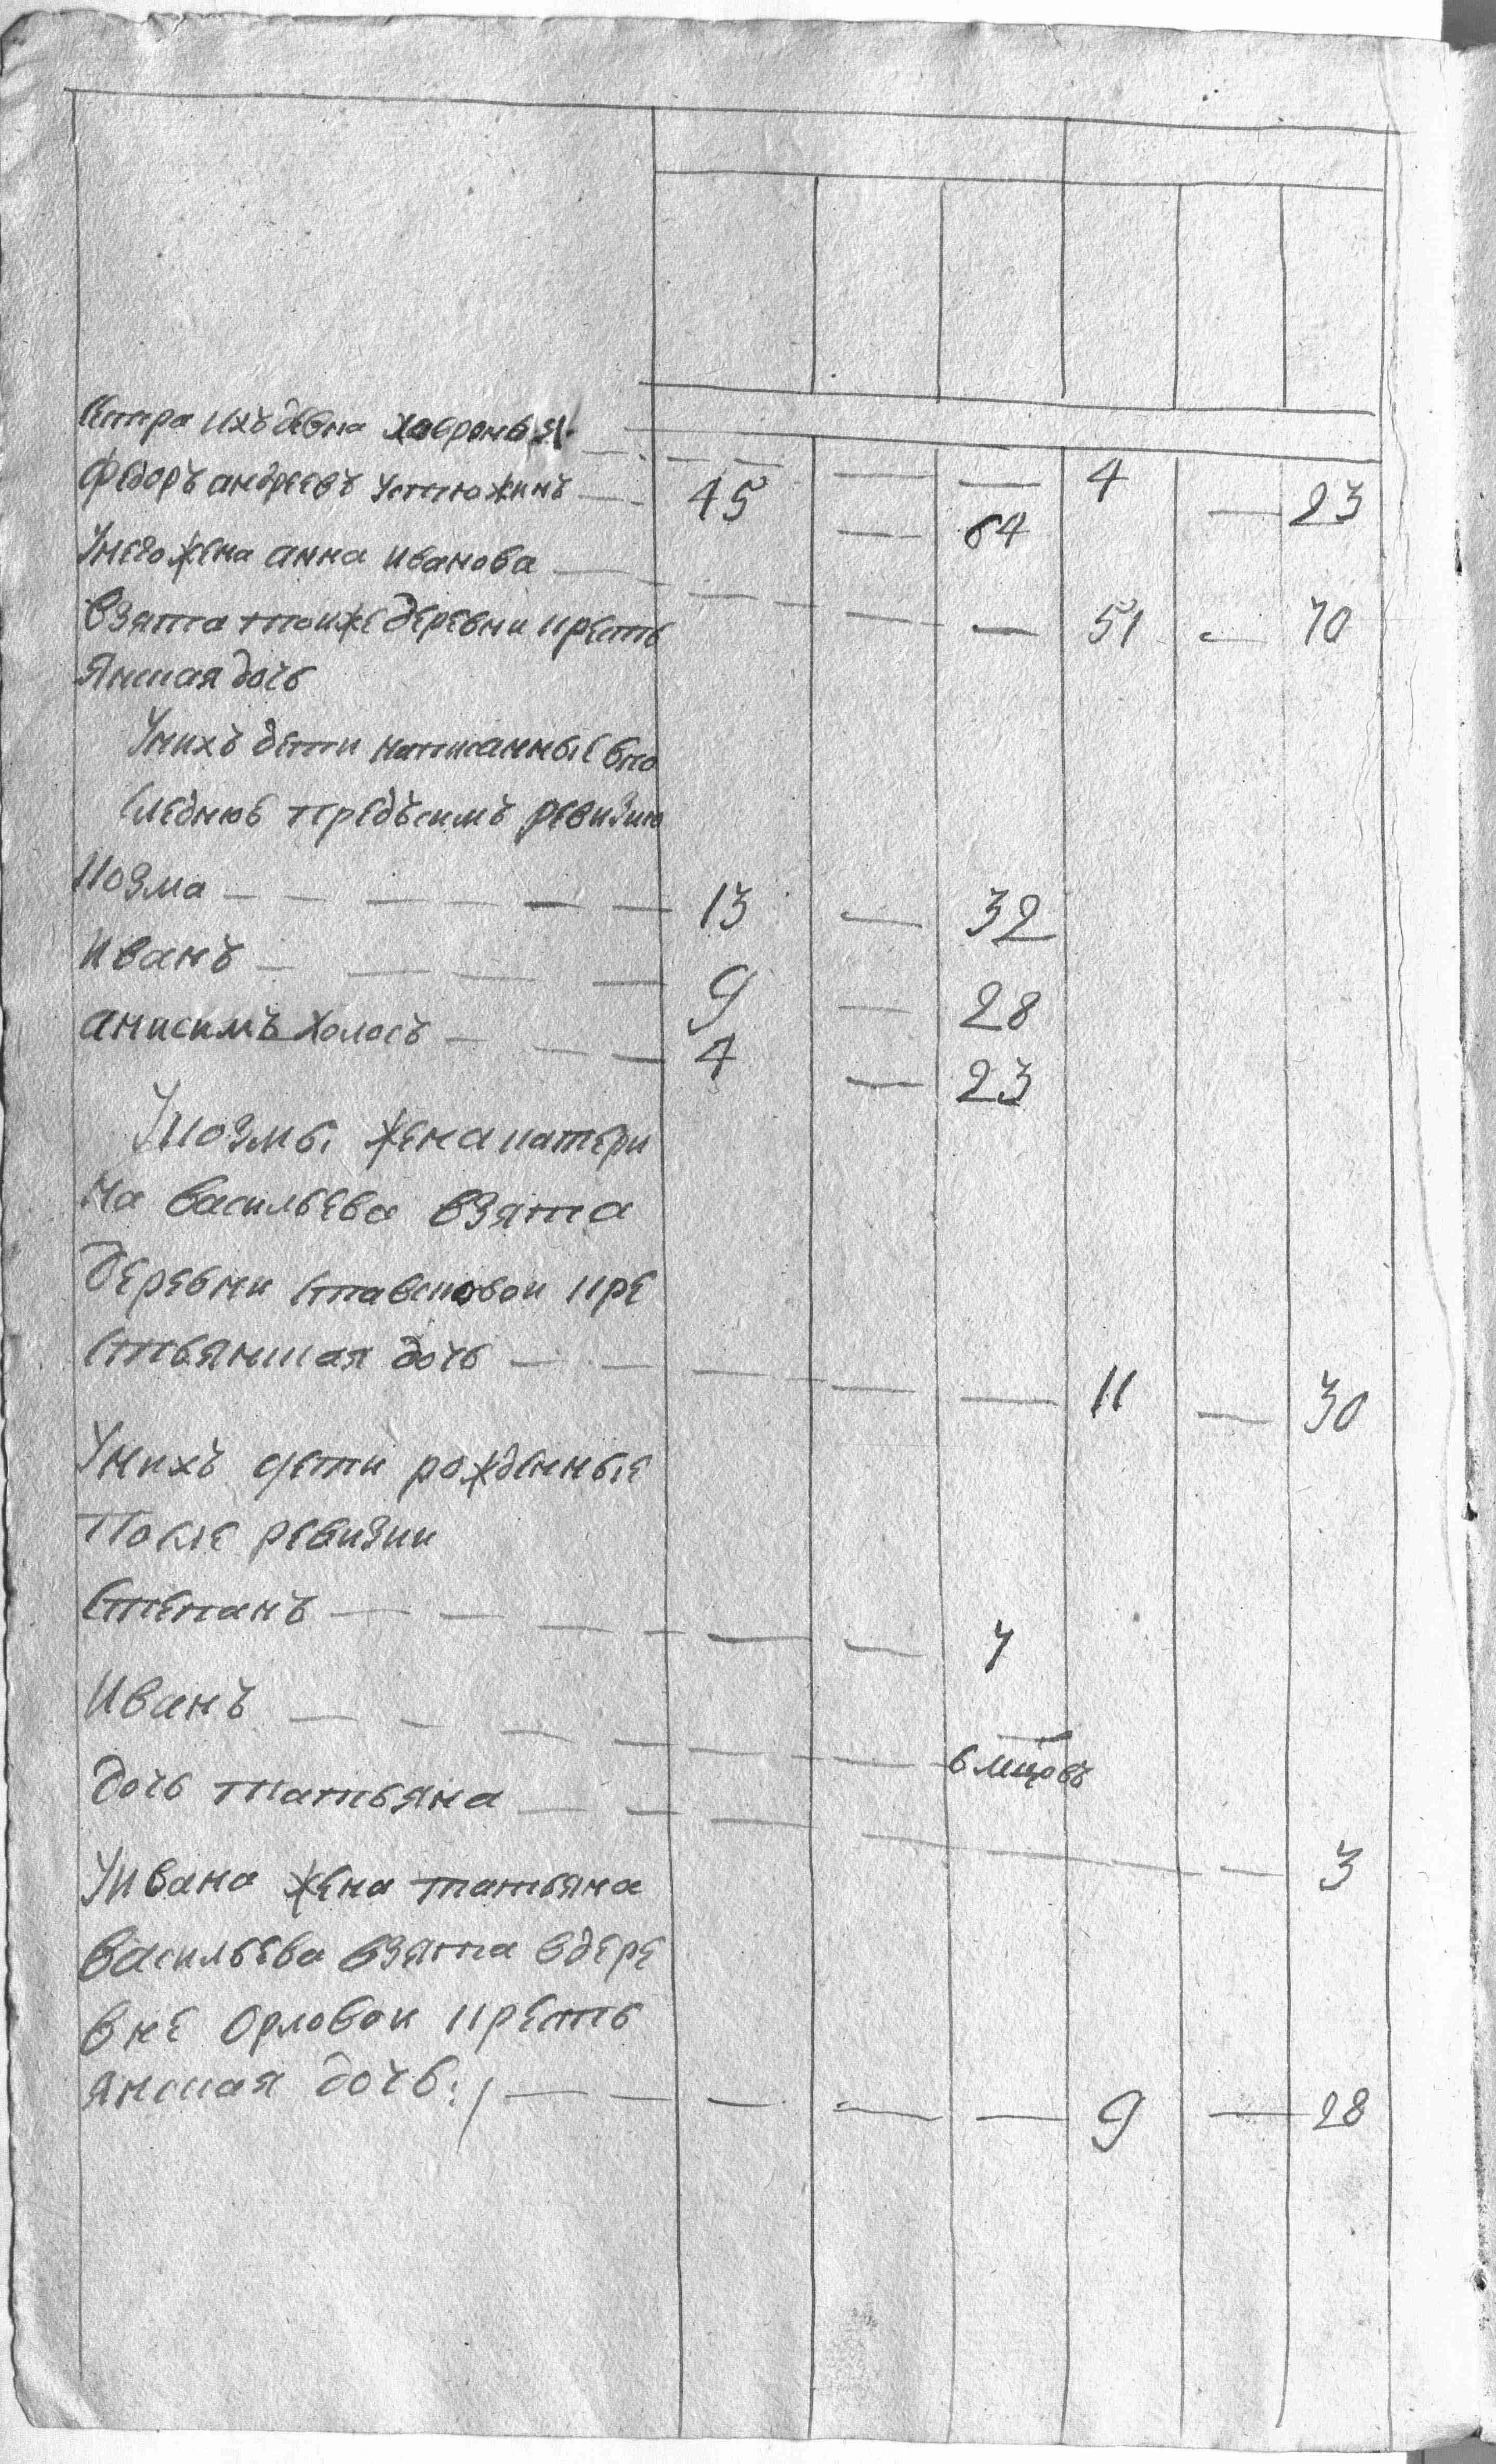 сестра ихъ девка Хавронья — — — — — 4 — 23
Федоръ андреевъ устюжинъ — 45 — 64
Унего жена анна иванова — — — — — 51 — 70
Взята тоиже деревни кресть
янская дочь
Унихъ дети написанные впо
следнюю предъсимъ ревизию
Козма — — — — — — 13 — 32
Иванъ — — — — 9 — 28
анисимъ холостъ — — — 4 — 23
Укозмы жена катери
на васильева взята
деревни ставсковои кре
стьянская дочь — — — — — 11 — 30
Унихъ дети рожденные
После ревизии
Степанъ — — — — — — 7
Иванъ — — — — — — 6 мцовъ
дочь татьяна — — — — — — 3
Уивана жена татьяна
васильева взята вдере
вне Орловои кресть
янская дочь :/ — — — — — 9 — 28